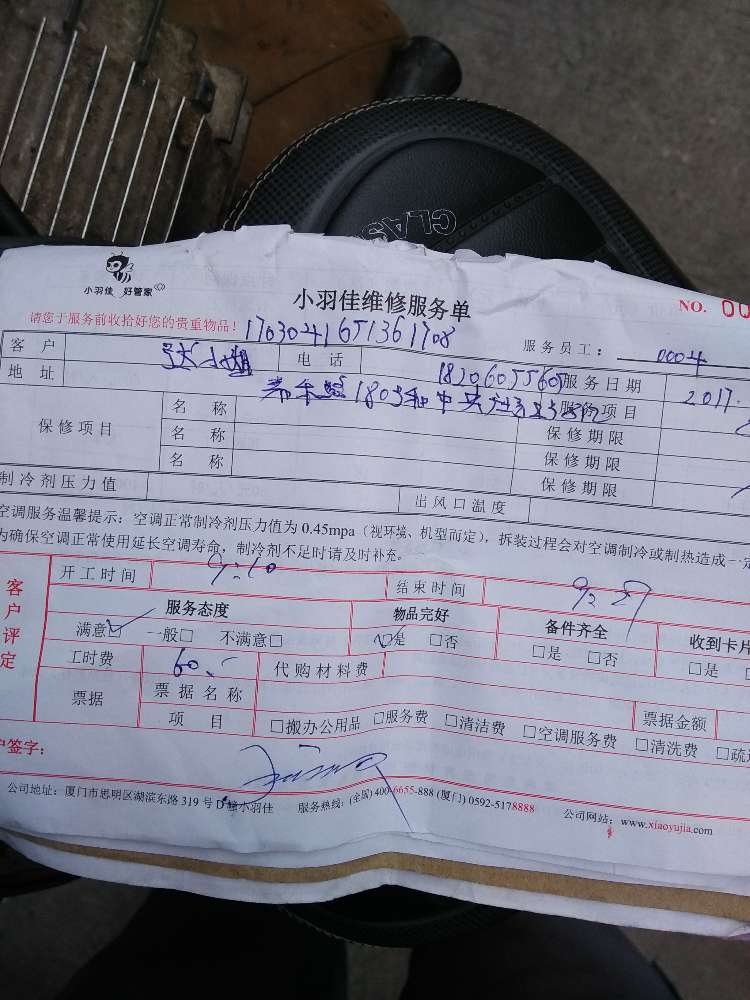 CLAS
小羽佳 好管家
小羽佳维修服务单
NO. 00
请您于服务前收拾好您的贵重物品！
1703041651361708
服务员工： 0004
客 户 张小姐 电 话 18206055605 服务日期 2017.
地 址 1805 服务项目
保修项目 名 称 保修期限
名 称 保修期限
名 称 保修期限
制冷剂压力值 出风口温度
空调服务温馨提示：空调正常制冷剂压力值为 0.45mpa（视环境、机型而定），拆装过程会对空调制冷或制热造成一定
为确保空调正常使用延长空调寿命，制冷剂不足时请及时补充。
客户评定
开工时间 9:10 结束时间 9:27
服务态度 物品完好 备件齐全 收到卡片
满意☑ 一般□ 不满意□ ☑是 □否 □是 □否 □是
工时费 60.- 代购材料费
票据 票据名称 票据金额
项 目 □搬办公用品 □服务费 □清洁费 □空调服务费 □清洗费 □疏通
户签字：
公司地址：厦门市思明区湖滨东路 319 号 D 幢小羽佳 服务热线：(全国) 400-6655-888 (厦门) 0592-5178888 公司网站：www.xiaoyujia.com